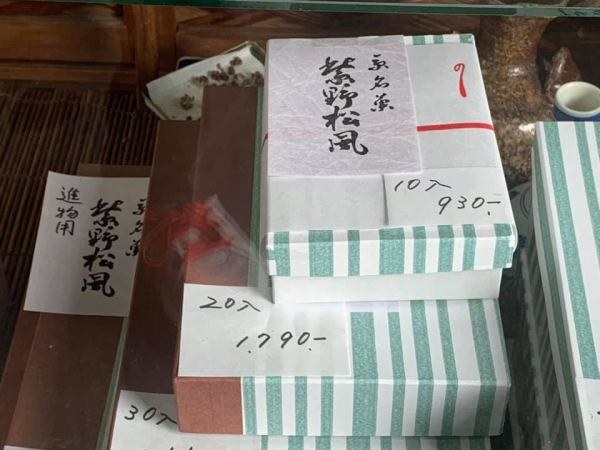 京名菓
紫野松風
10入
930.-
進物用
京名菓
紫野松風
20入
1.790.-
30入